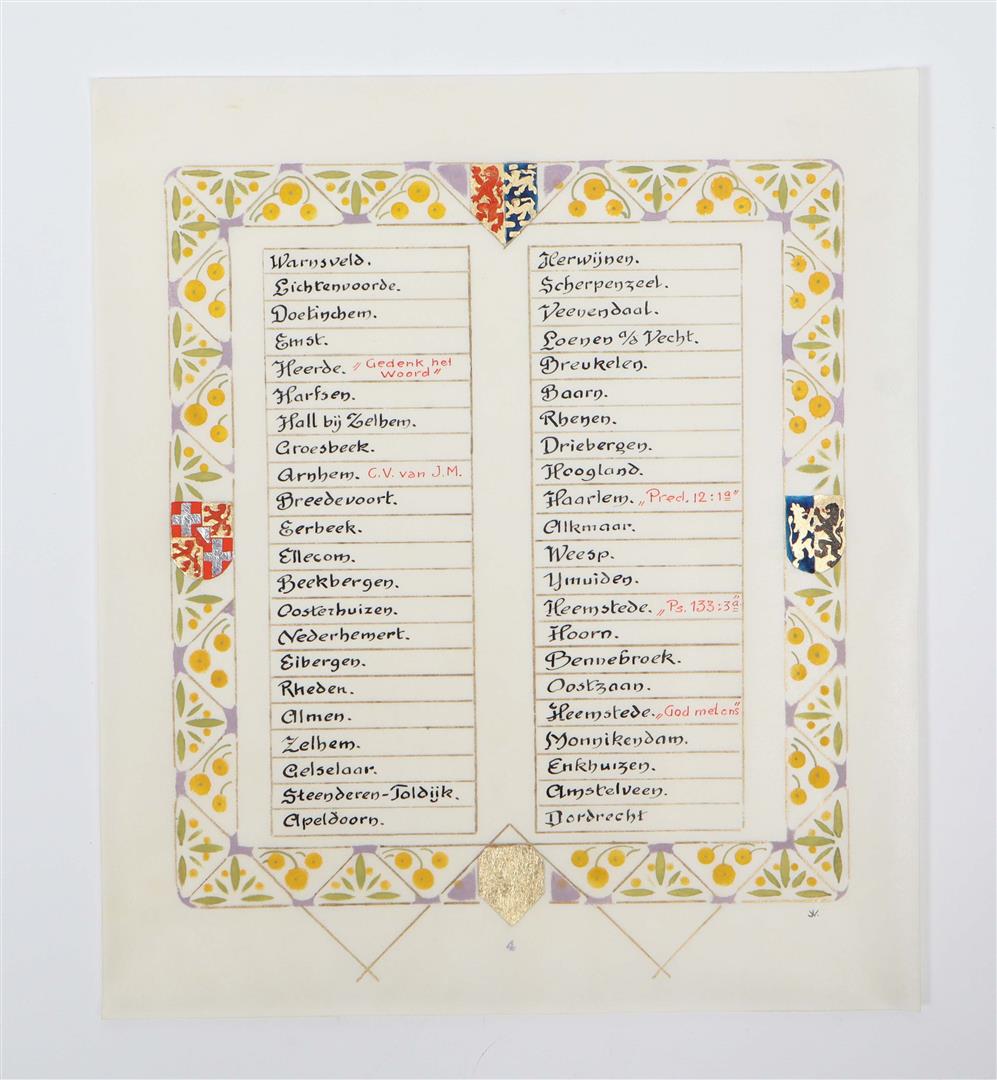 Warnsveld.
Lichtenvoorde.
Doetinchem.
Emst.
Heerde. „Gedenk het
Woord"
Harfsen.
Hall bij Zelhem.
Groesbeek.
Arnhem. C.V. van J.M.
Breedevoort.
Eerbeek.
Ellecom.
Beekbergen.
Oosterhuizen.
Nederhemert.
Eibergen.
Rheden.
Almen.
Zelhem.
Gelselaar.
Steenderen-Toldijk.
Apeldoorn.
Herwijnen.
Scherpenzeel.
Veenendaal.
Loenen a/d Vecht.
Breukelen.
Baarn.
Rhenen.
Driebergen.
Hoogland.
Haarlem. „Pred. 12:1a"
Alkmaar.
Weesp.
Ymuiden.
Heemstede. „Ps. 133:3a"
Hoorn.
Bennebroek.
Oostzaan.
Heemstede. „God met ons"
Monnikendam.
Enkhuizen.
Amstelveen.
Dordrecht
4